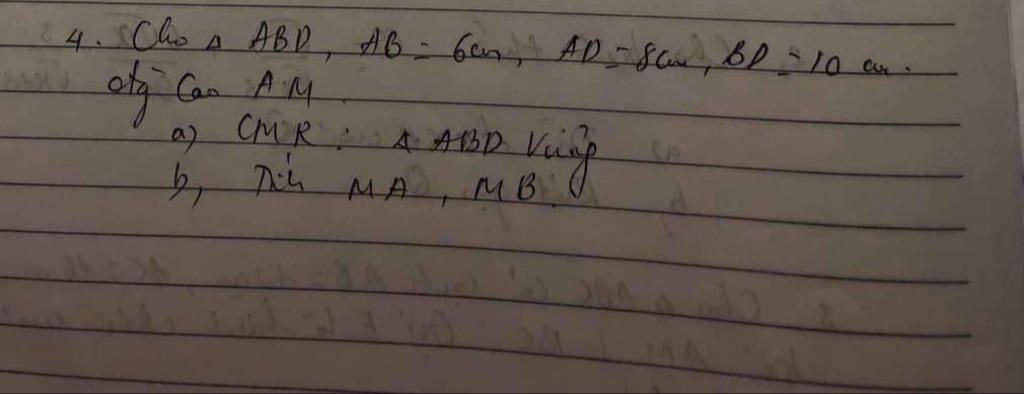 4. Cho Δ ABD, AB = 6cm, AD = 8cm, BD = 10 cm.
Cao AM
a) CMR : Δ ABD Vuông
b, Tính MA, MB.